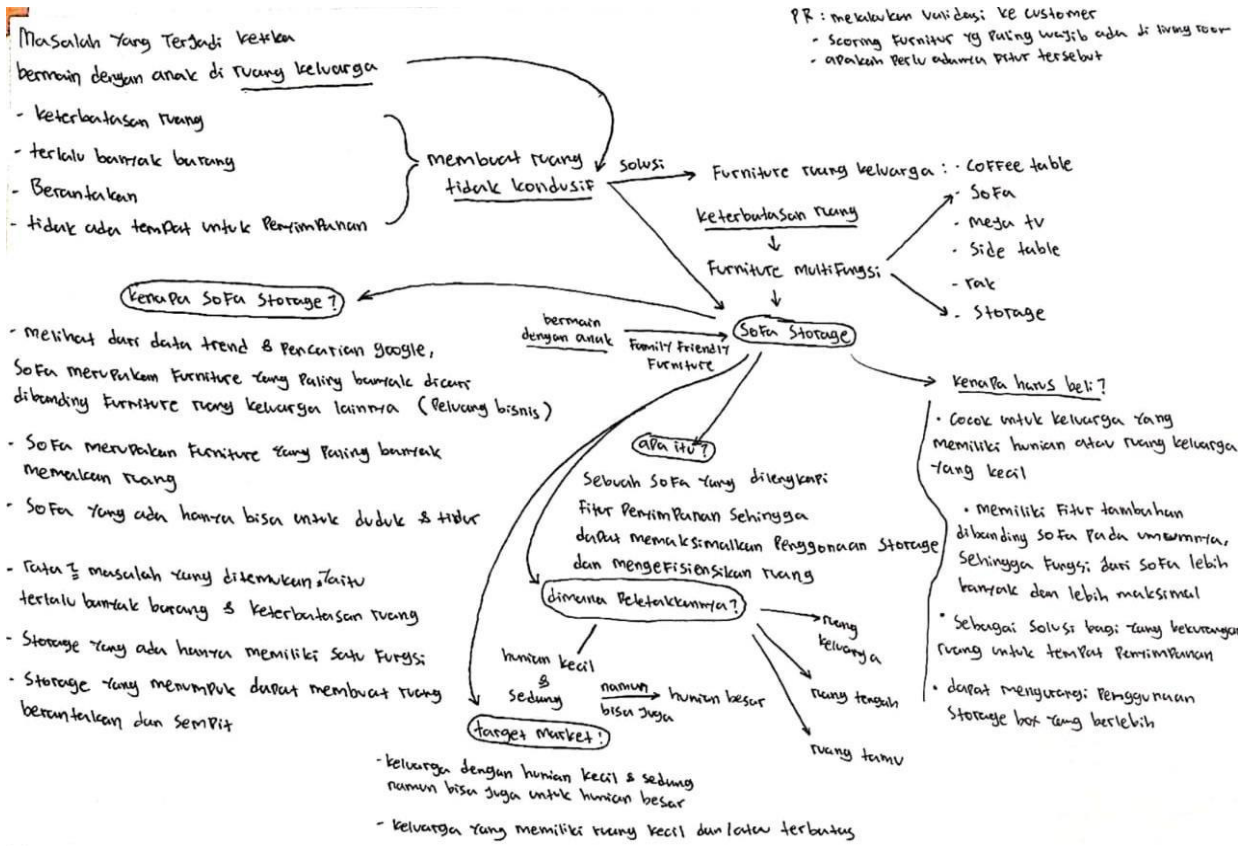 PR : melakukan validasi ke customer
- Scoring Furnitur yg Paling wajib ada di living room
- apakah Perlu adanya Fitur tersebut
Masalah Yang Terjadi ketika
bermain dengan anak di ruang keluarga
- keterbatasan ruang
- terlalu banyak barang
- Berantakan
- tidak ada temPat untuk PenyimPanan
membuat ruang
tidak kondusif
solusi
Furniture ruang keluarga : - Coffee table
- Sofa
- meja tv
- Side table
- rak
- Storage
keterbatasan ruang
Furniture multifungsi
Sofa Storage
bermain
dengan anak
Family Friendly
Furniture
kenaPa Sofa Storage ?
- melihat dari data trend & Pencarian google,
Sofa meruPakan Furniture Yang Paling banyak dicari
dibanding Furniture ruang keluarga lainnya (Peluang bisnis)
- Sofa meruPakan Furniture Yang Paling banyak
memakan ruang
- Sofa Yang ada hanya bisa untuk duduk & tidur
- rata2 masalah Yang ditemukan, Yaitu
terlalu banyak barang & keterbatasan ruang
- Storage Yang ada hanya memiliki satu Fungsi
- Storage Yang menumPuk daPat membuat ruang
berantakan dan SemPit
apa itu ?
Sebuah Sofa Yang dilengkaPi
Fitur PenyimPanan Sehingga
daPat memaksimalkan Penggunaan Storage
dan mengefisiensikan ruang
dimana Peletakkannya ?
hunian kecil
&
Sedang
namun
bisa Juga
hunian besar
ruang
keluarga
ruang tengah
ruang tamu
target market !
- keluarga dengan hunian kecil & sedang
namun bisa Juga untuk hunian besar
- keluarga Yang memiliki ruang kecil dan/atau terbatas
kenaPa harus beli ?
• Cocok untuk keluarga Yang
memiliki hunian atau ruang keluarga
Yang kecil
• memiliki Fitur tambahan
dibanding Sofa Pada umumnya,
Sehingga Fungsi dari Sofa lebih
banyak dan lebih maksimal
• Sebagai Solusi bagi Yang kekurangan
ruang untuk temPat PenyimPanan
• daPat mengurangi Penggunaan
Storage box Yang berlebih